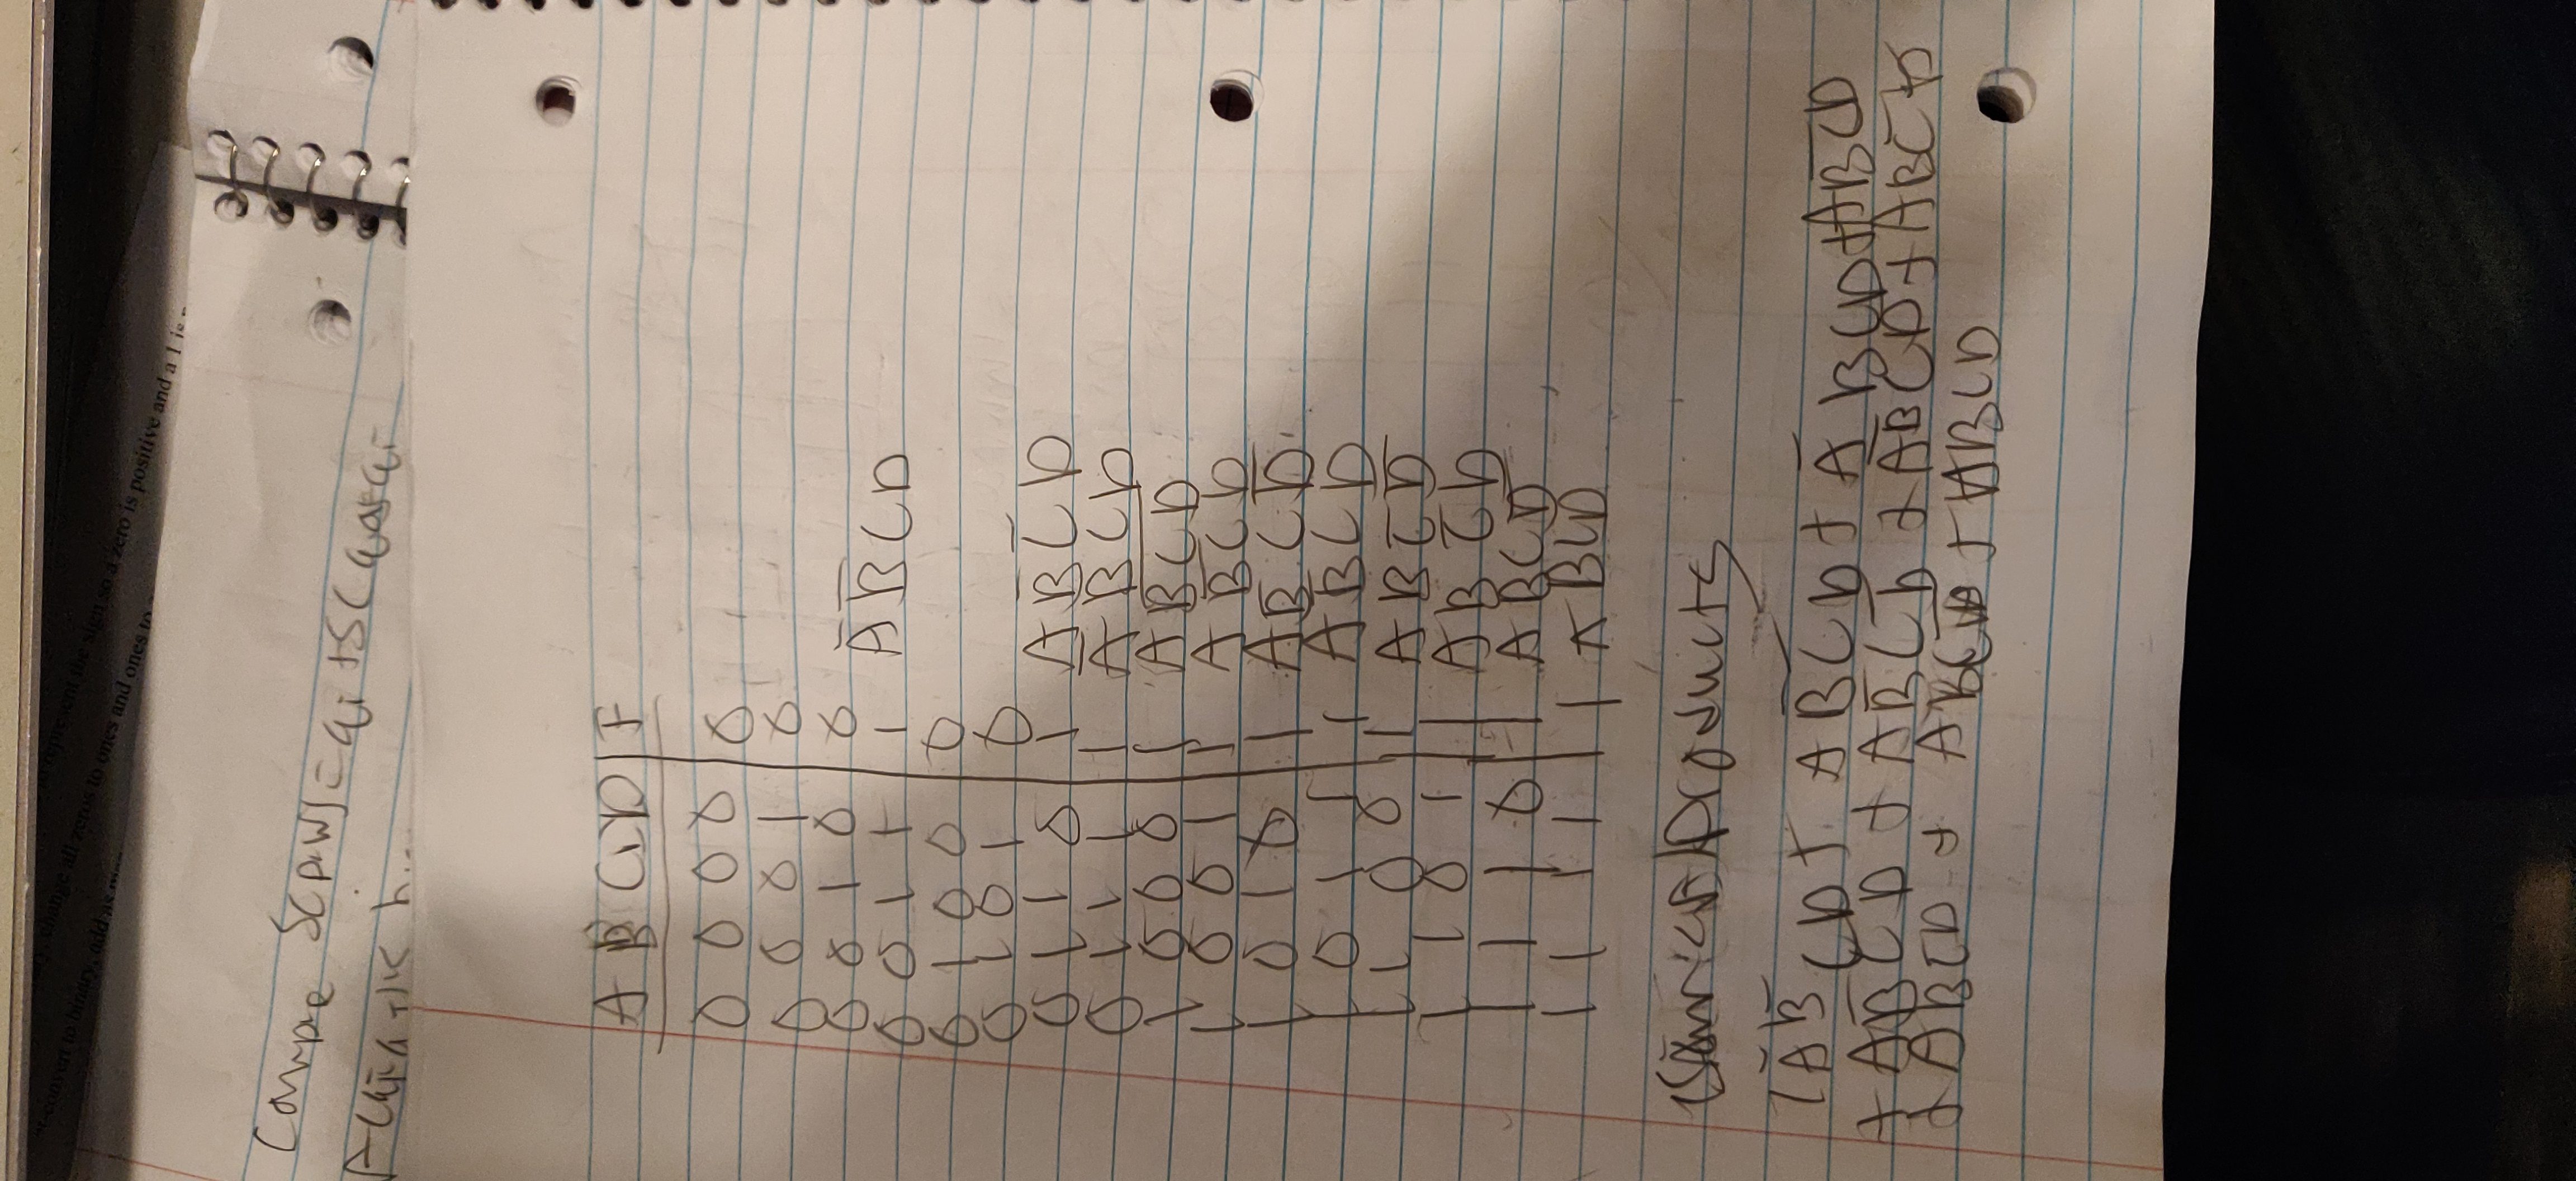 to represent the sign so a zero is positive and a 1 is
change all zeros to ones and ones to
convert to binary, add as
A B C D | F
0 0 0 0 | 0
0 0 0 1 | 0
0 0 1 0 | 0
0 0 1 1 | 1 A̅ B̅ C D
0 1 0 0 | 0
0 1 0 1 | 0
0 1 1 0 | 1 A B̅ C̅ D
0 1 1 1 | 1 A̅ B C D
1 0 0 0 | 1 A B̅ C̅ D̅
1 0 0 1 | 1 A B̅ C D
1 0 1 0 | 1 A B̅ C D̅
1 0 1 1 | 1 A B̅ C D
1 1 0 0 | 1 A B C̅ D̅
1 1 0 1 | 1 A B C̅ D
1 1 1 0 | 1 A B C D̅
1 1 1 1 | 1 A B C D
Products
A̅ B̅ C D + A B̅ C̅ D + A̅ B C D + A B̅ C̅ D
+ A B̅ C D + A B̅ C D̅ + A B̅ C D + A B C̅ D
+ A B C D + A B C D̅ + A B C D